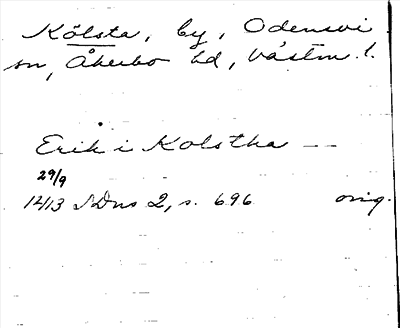 Kölsta, by, Odensvi
sn, Åkerbo hd, Västm. l.
Erik i Kolstha --
29/9
1413 SDns 2, s. 696 orig.